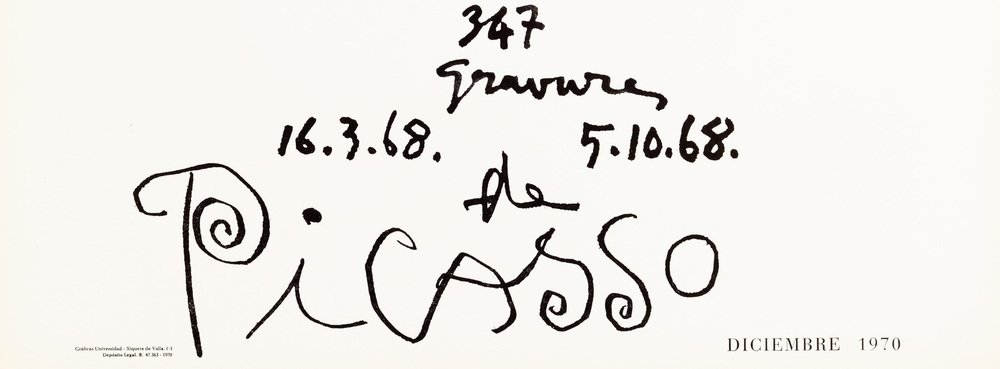 347
gravures
16.3.68. 5.10.68.
de
Picasso
Gráficas Universidad - Xiquets de Valls, 1-3
Depósito Legal. B. 47.563 - 1970
DICIEMBRE 1970